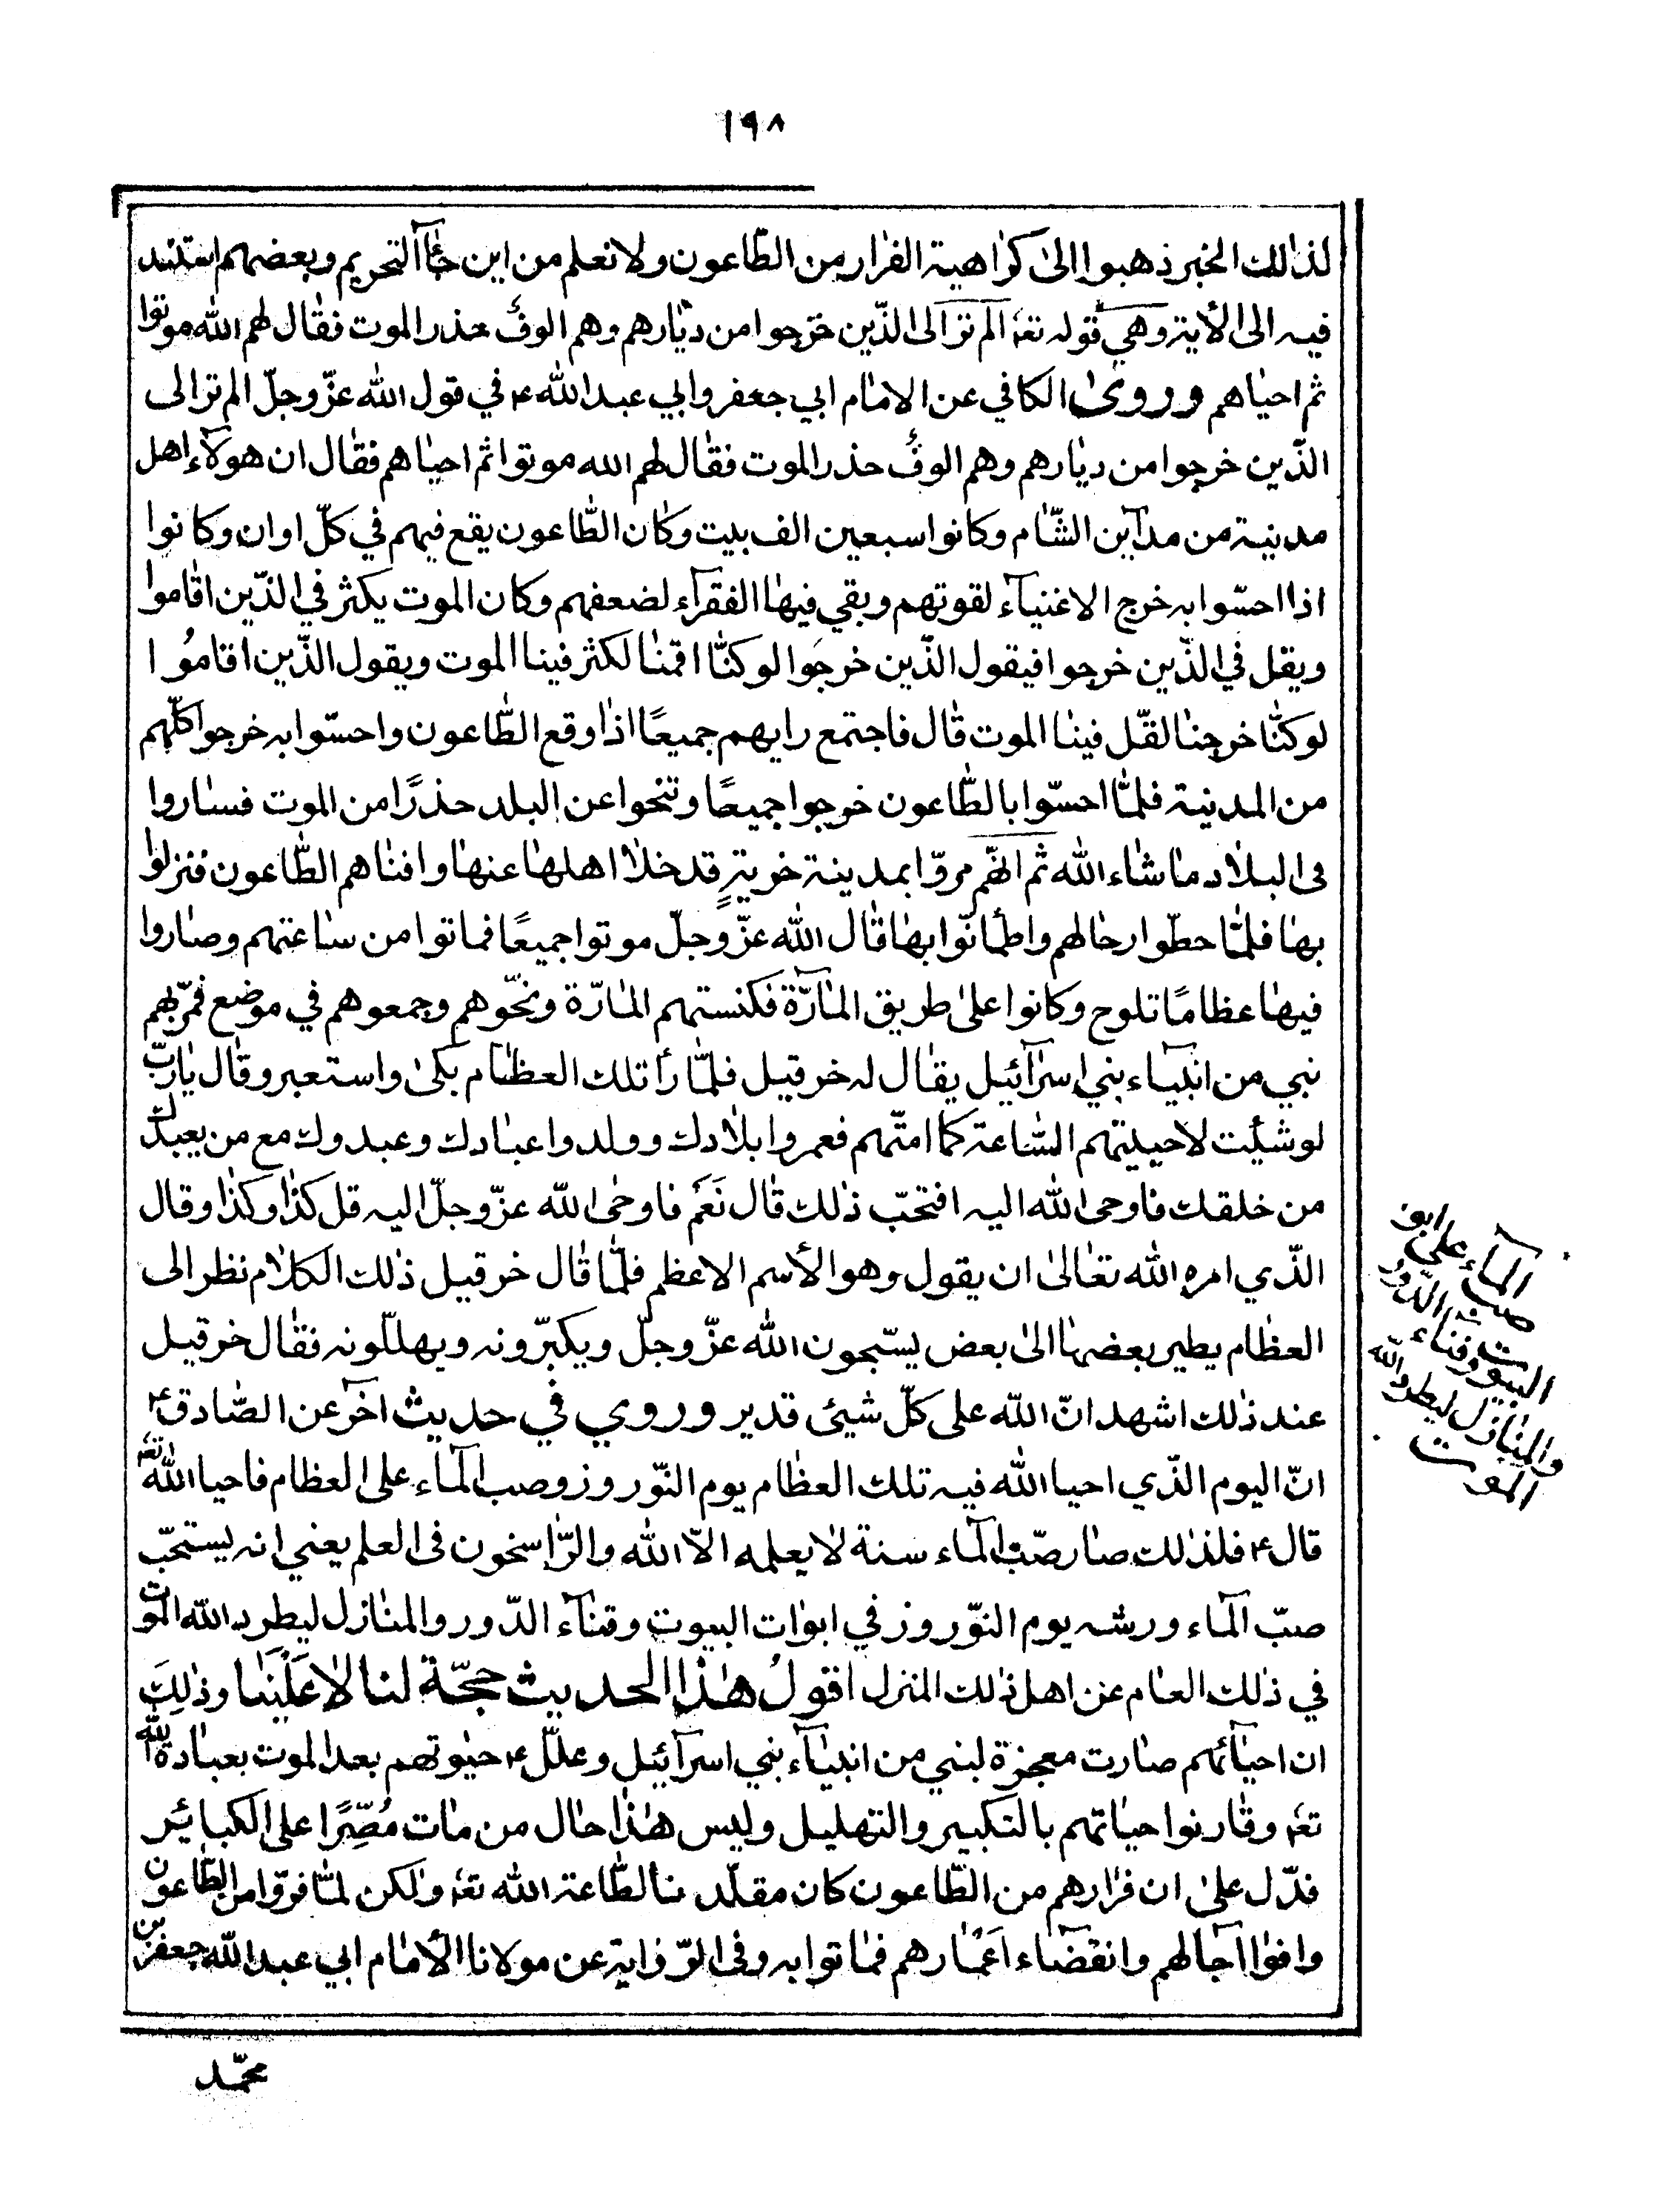 ١٩٨
لذالك الخبر ذهبوا الىٰ كراهية الفرار من الطّاعون ولا نعلم من اين جآء التحريم وبعضهم استند
فيه الى الأية وهي قوله تعٰ الم تر الى الذّين خرجوا من ديارهم وهم الوفٌ حذر الموت فقال لهم الله موتوا
ثم احياهم وروىٰ الكافي عن الامام ابي جعفر وابي عبد الله ع في قول الله عزّ وجلّ الم تر الى
الذّين خرجوا من ديارهم وهم الوفٌ حذر الموت فقال لهم الله موتوا ثم احياهم فقال ان هولآء اهل
مدينة من مدآين الشّام وكانوا سبعين الف بيت وكان الطّاعون يقع فيهم في كلّ اوان وكانوا
اذا احسّوا به خرج الاغنيآء لقوتهم وبقي فيها الفقرآء لضعفهم وكان الموت يكثر في الذّين اقاموا
ويقل في الذّين خرجوا فيقول الذّين خرجَوا لو كنّا اقمنا لكثر فينا الموت ويقول الذّين اقامُوا
لو كنّا خرجنا لقّل فينا الموت قال فاجتمع رايهم جميعًا اذا وقع الطّاعون واحسّوا به خرجوا كلّهم
من المدينة فلمّا احسّوا بالطّاعون خرجوا جميعًا وتنحوا عن البلد حذرًا من الموت فساروا
فى البلاد ما شاء الله ثم انهّم مروّا بمدينة خربةٍ قد خلا اهلها عنها وافناهم الطّاعون فنزلوا
بها فلمّا حطّوا رحالهم واطمأنّوا بها قال الله عزّ وجلّ موتوا جميعًا فماتوا من ساعتهم وصاروا
فيها عظامًا تلوح وكانوا علىٰ طريق المآرّة فكنستهم المارّة ونحّوهم وجمعوهم في موضع فمرّ بهم
نبي من انبيآء بني اسرآئيل يقال له خرقيل فلمّا رأ تلك العظام بكىٰ واستعبر وقال يا ربّ
لو شئت لاحييتهم السّاعة كما امتّهم فعمروا بلادك وولدوا عبادك وعبدوك مع من يعبدك
من خلقك فاوحى الله اليه افتحبّ ذلك قال نَعَم فاوحى الله عزّ وجلّ اليه قل كذا وكذا وقال
الذّي امره الله تعالىٰ ان يقول وهو الأسم الاعظم فلمّا قال خرقيل ذلك الكلام نظر الى
العظام يطير بعضها الىٰ بعض يسّبحون الله عزّ وجلّ ويكبّرونه ويهلّلونه فقال خرقيل
عند ذلك اشهد انّ الله على كلّ شيئ قدير وروي في حديث اخر عن الصّادق ع
انّ اليوم الذّي احيا الله فيه تلك العظام يوم النّوروز وصب المآء على العظام فاحيا الله تعٰ
قال ع فلذلك صار صبّ المآء سنة لا يعلمه الاّ الله والرّاسخون فى العلم يعني انه يستحبّ
صبّ المآء ورشه يوم النّوروز في ابوات البيوت وقنآء الدّور والمنازل ليطرد الله الموت
في ذلك العام عن اهل ذلك المنزل اقولُ هذا الحديث حجّة لنا لا عَلَيْنا وذلِكَ
ان احيائهم صارت معجزة لنبي من انبيآء بني اسرآئيل وعلّل ع حيوتهم بعد الموت بعبادة الله
تعٰ وقارنوا حياتهم بالتكبير والتهليل وليس هذا حال من مات مُصِّرًا على الكبائر
فدّل علىٰ ان فرارهم من الطّاعون كان لطّاعة الله تعٰ ولكن لمّا فروّا من الطّاعون
وافوا اجالهم وانقضآء اَعْمارهم فماتوا به وفى الرّواية عن مولانا الأمام ابي عبد الله جعفر بن
المآء على ابو
صب الدّور
البيوت وفناء
والمنازل ليطرد الله
الموت
محمّد